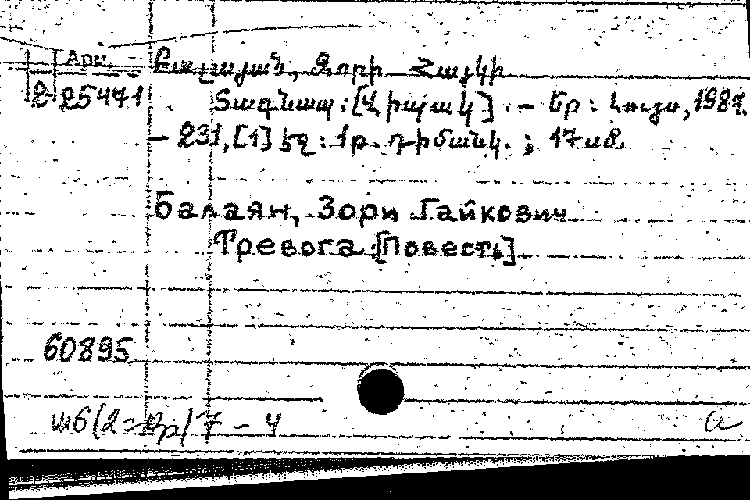 Арм.
Բալայան, Զորի Հայկի
2-25471
Տագնապ: [Վիպակ]. — Եր.: Լույս, 1987.
— 231, [1] էջ: 1թ. դիմանկ.; 17 սմ.
Балаян, Зори Гайкович
Тревога: [Повесть]
60895
ш6(2=Ар)7 - 4
a